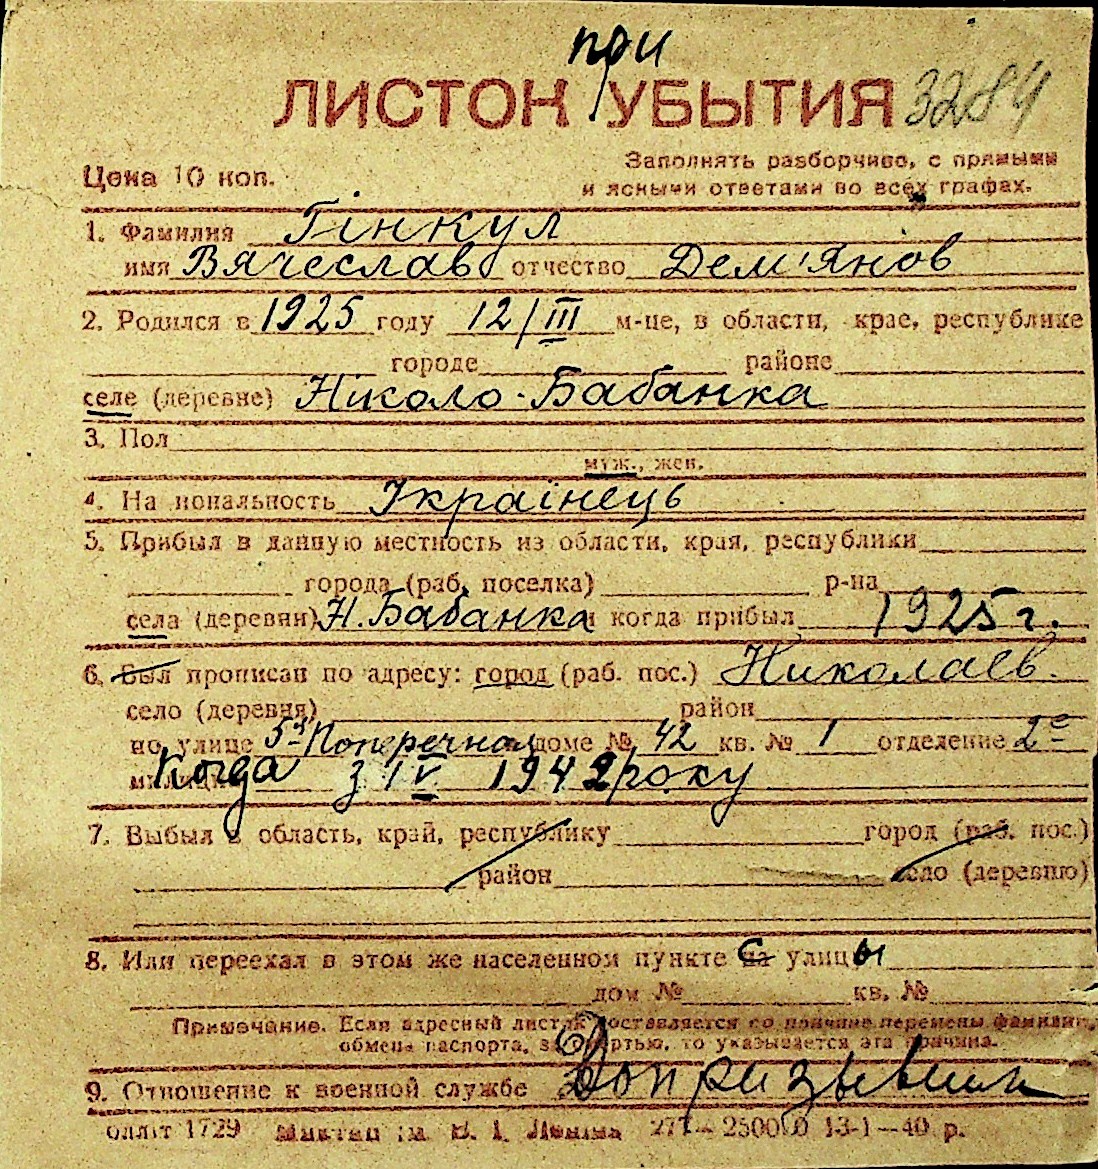 при
ЛИСТОК УБЫТИЯ 3284
Цена 10 коп. Заполнять разборчиво, с прямыми
и ясными ответами во всех графах.
1. Фамилия Гінкул
имя Вячеслав отчество Дем'янов
2. Родился в 1925 году 12/III м-це, в области, крае, республике
городе районе
селе (деревне) Ніколо-Бабанка
3. Пол
муж., жен.
4. Национальность Українець
5. Прибыл в данную местность из области, края, республики
города (раб. поселка) р-на
села (деревни) Н. Бабанка и когда прибыл 1925 г.
6. Был прописан по адресу: город (раб. пос.) Николаев.
село (деревня) район
по улице 5я Поперечная доме № 42 кв. № 1 отделение 2е
милиции Когда з IV 1942 року
7. Выбыл в область, край, республику город (раб. пос.)
район село (деревню)
8. Или переехал в этом же населенном пункте с на улицы
дом № кв. №
Примечание. Если адресный листок составляется по причине перемены фамилии,
обмена паспорта, за смертью, то указывается эта причина.
9. Отношение к военной службе Допризывник
1729 13-1—40 р.